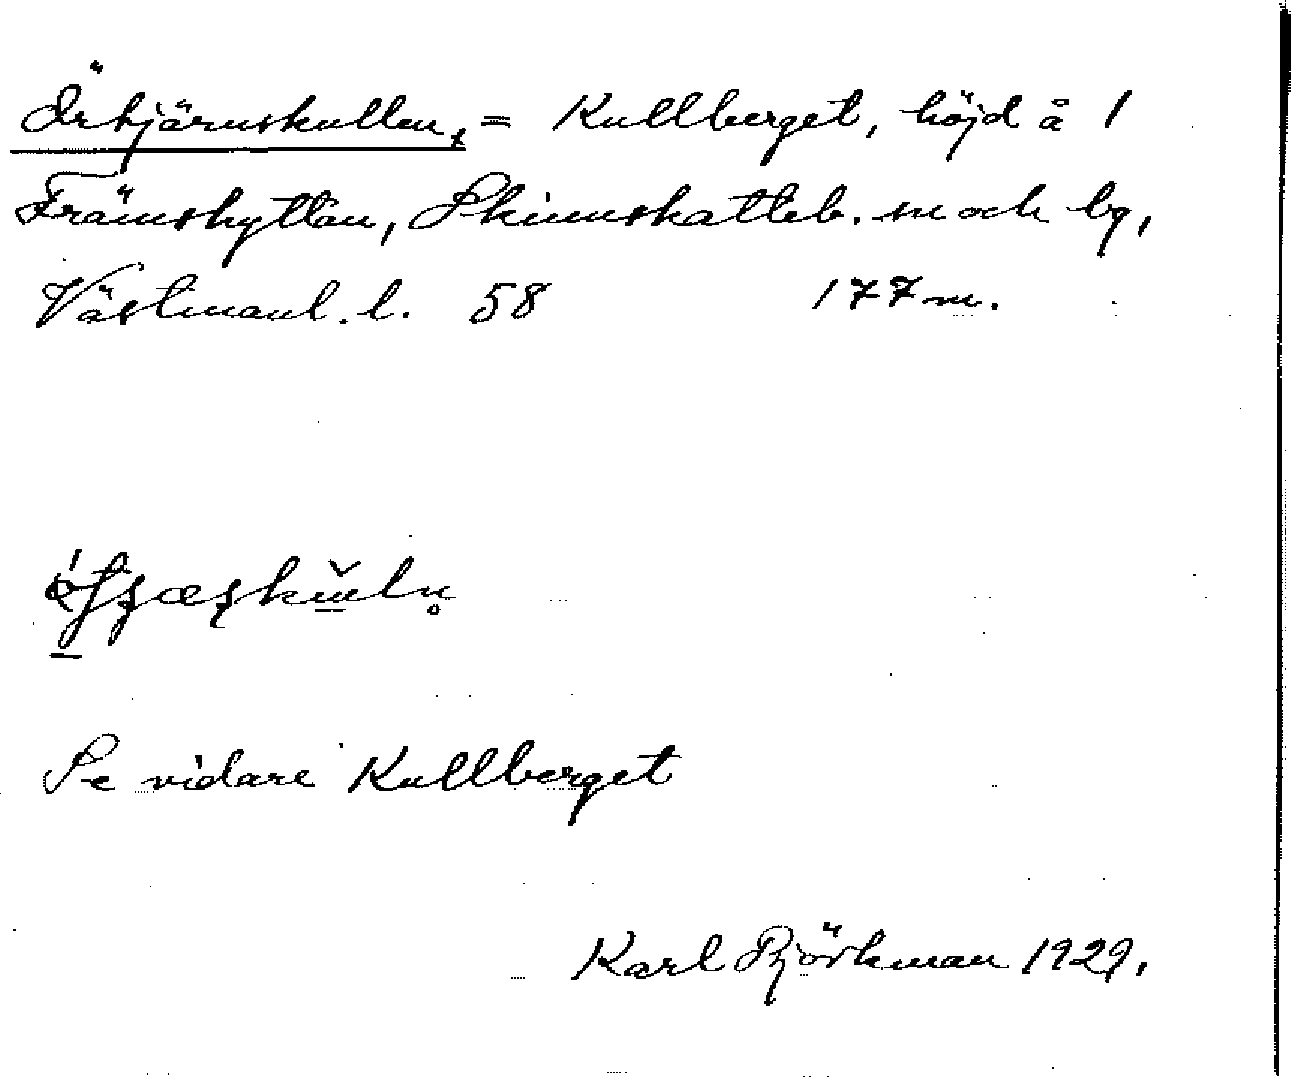 Örtjärnskullen, = Kullberget, höjd å 1
Främshyttan, Skinnskatteb. sn och bg,
Västmanl. l. 58 177 m.
Se vidare Kullberget
Karl Björkman 1929.